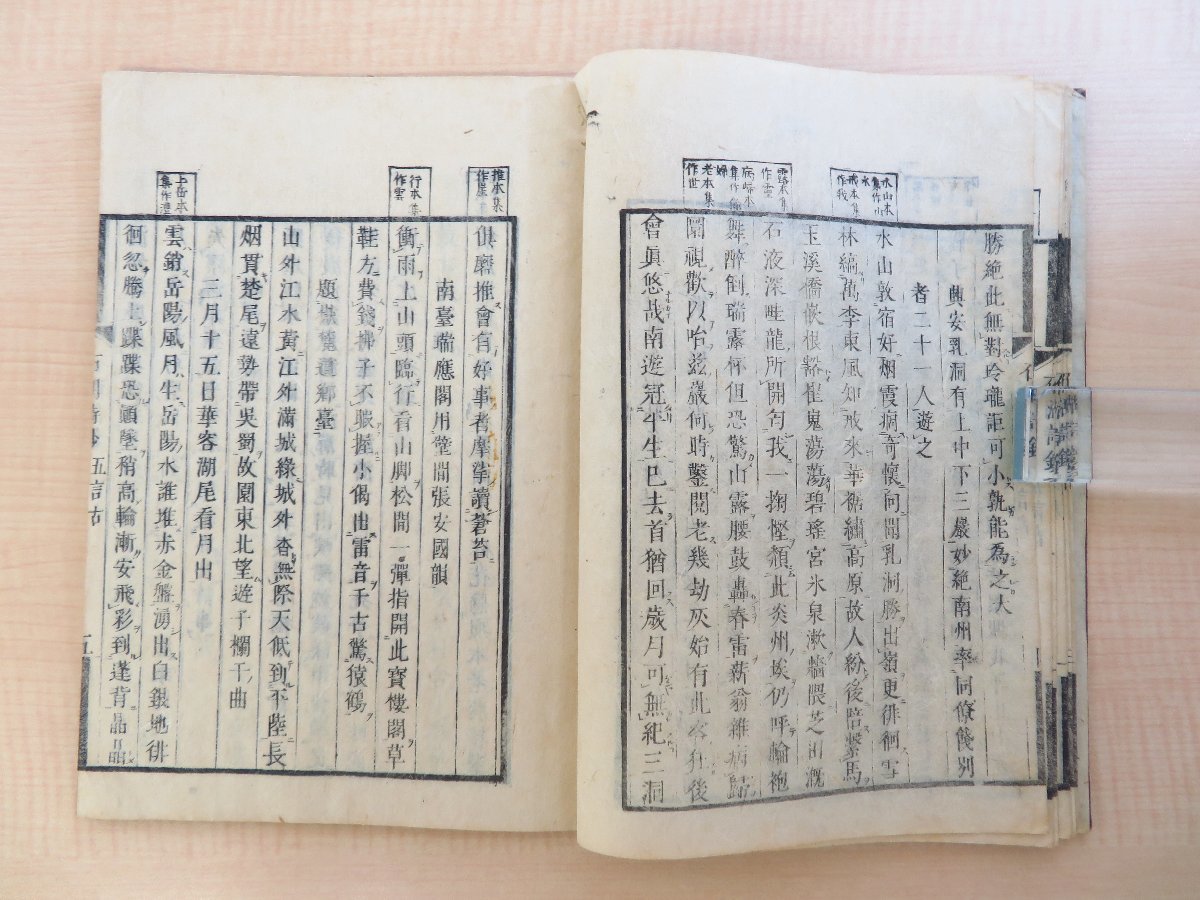 勝絶此無對玲瓏詎可小孰能為之大
興安乳洞有上中下三巖妙絶南州率同僚餞別
者二十一人遊之
水山敦宿好烟霞痼奇懷向聞乳洞勝出嶺更徘徊雪
林縞萬李東風知我來華裾繡高原故人紛後陪繫馬
玉溪橋嵌根豁崔嵬蕩蕩碧瑤宮氷泉漱牆隈芝田溉
石液深畦龍所開勻我一掬慳頮此炎州埃仍呼輪袍
舞醉倒瑞露杯但恐驚山靈腰鼓轟春雷薪翁雜病歸
圍視歡以咍茲巖何時鑿閱老幾劫灰始有此
後
會真悠哉南遊冠平生已去首猶回歲月可無紀三洞
俱磨推會有好事者摩挲讀蒼苔
南臺瑞應閣用壁間張安國韻
衡雨上山頭臨行看山脚松開一彈指開此寶樓閣草
鞋方費錢拂子不暇握小偈出雷音千古驚猿鶴
題
臺
山外江水黃江外滿城綠城外杳無際天低到平陸長
烟貫楚尾遠勢帶吳蜀故園東北望遊子欄干曲
三月十五日華容湖尾看月出
雲銷岳陽風月生岳陽水誰堆赤金盤湧出白銀地徘
徊忽騰上蹀蹀恐顛墜稍高輪漸安飛彩到蓬背晶晶
水山本
集作山
水
戒本集
作我
露本集
作靈
病歸本
集作
婦
老本集
作世
推本集
作崖
行本集
作雲
上岳本
集作澧
五言古
五